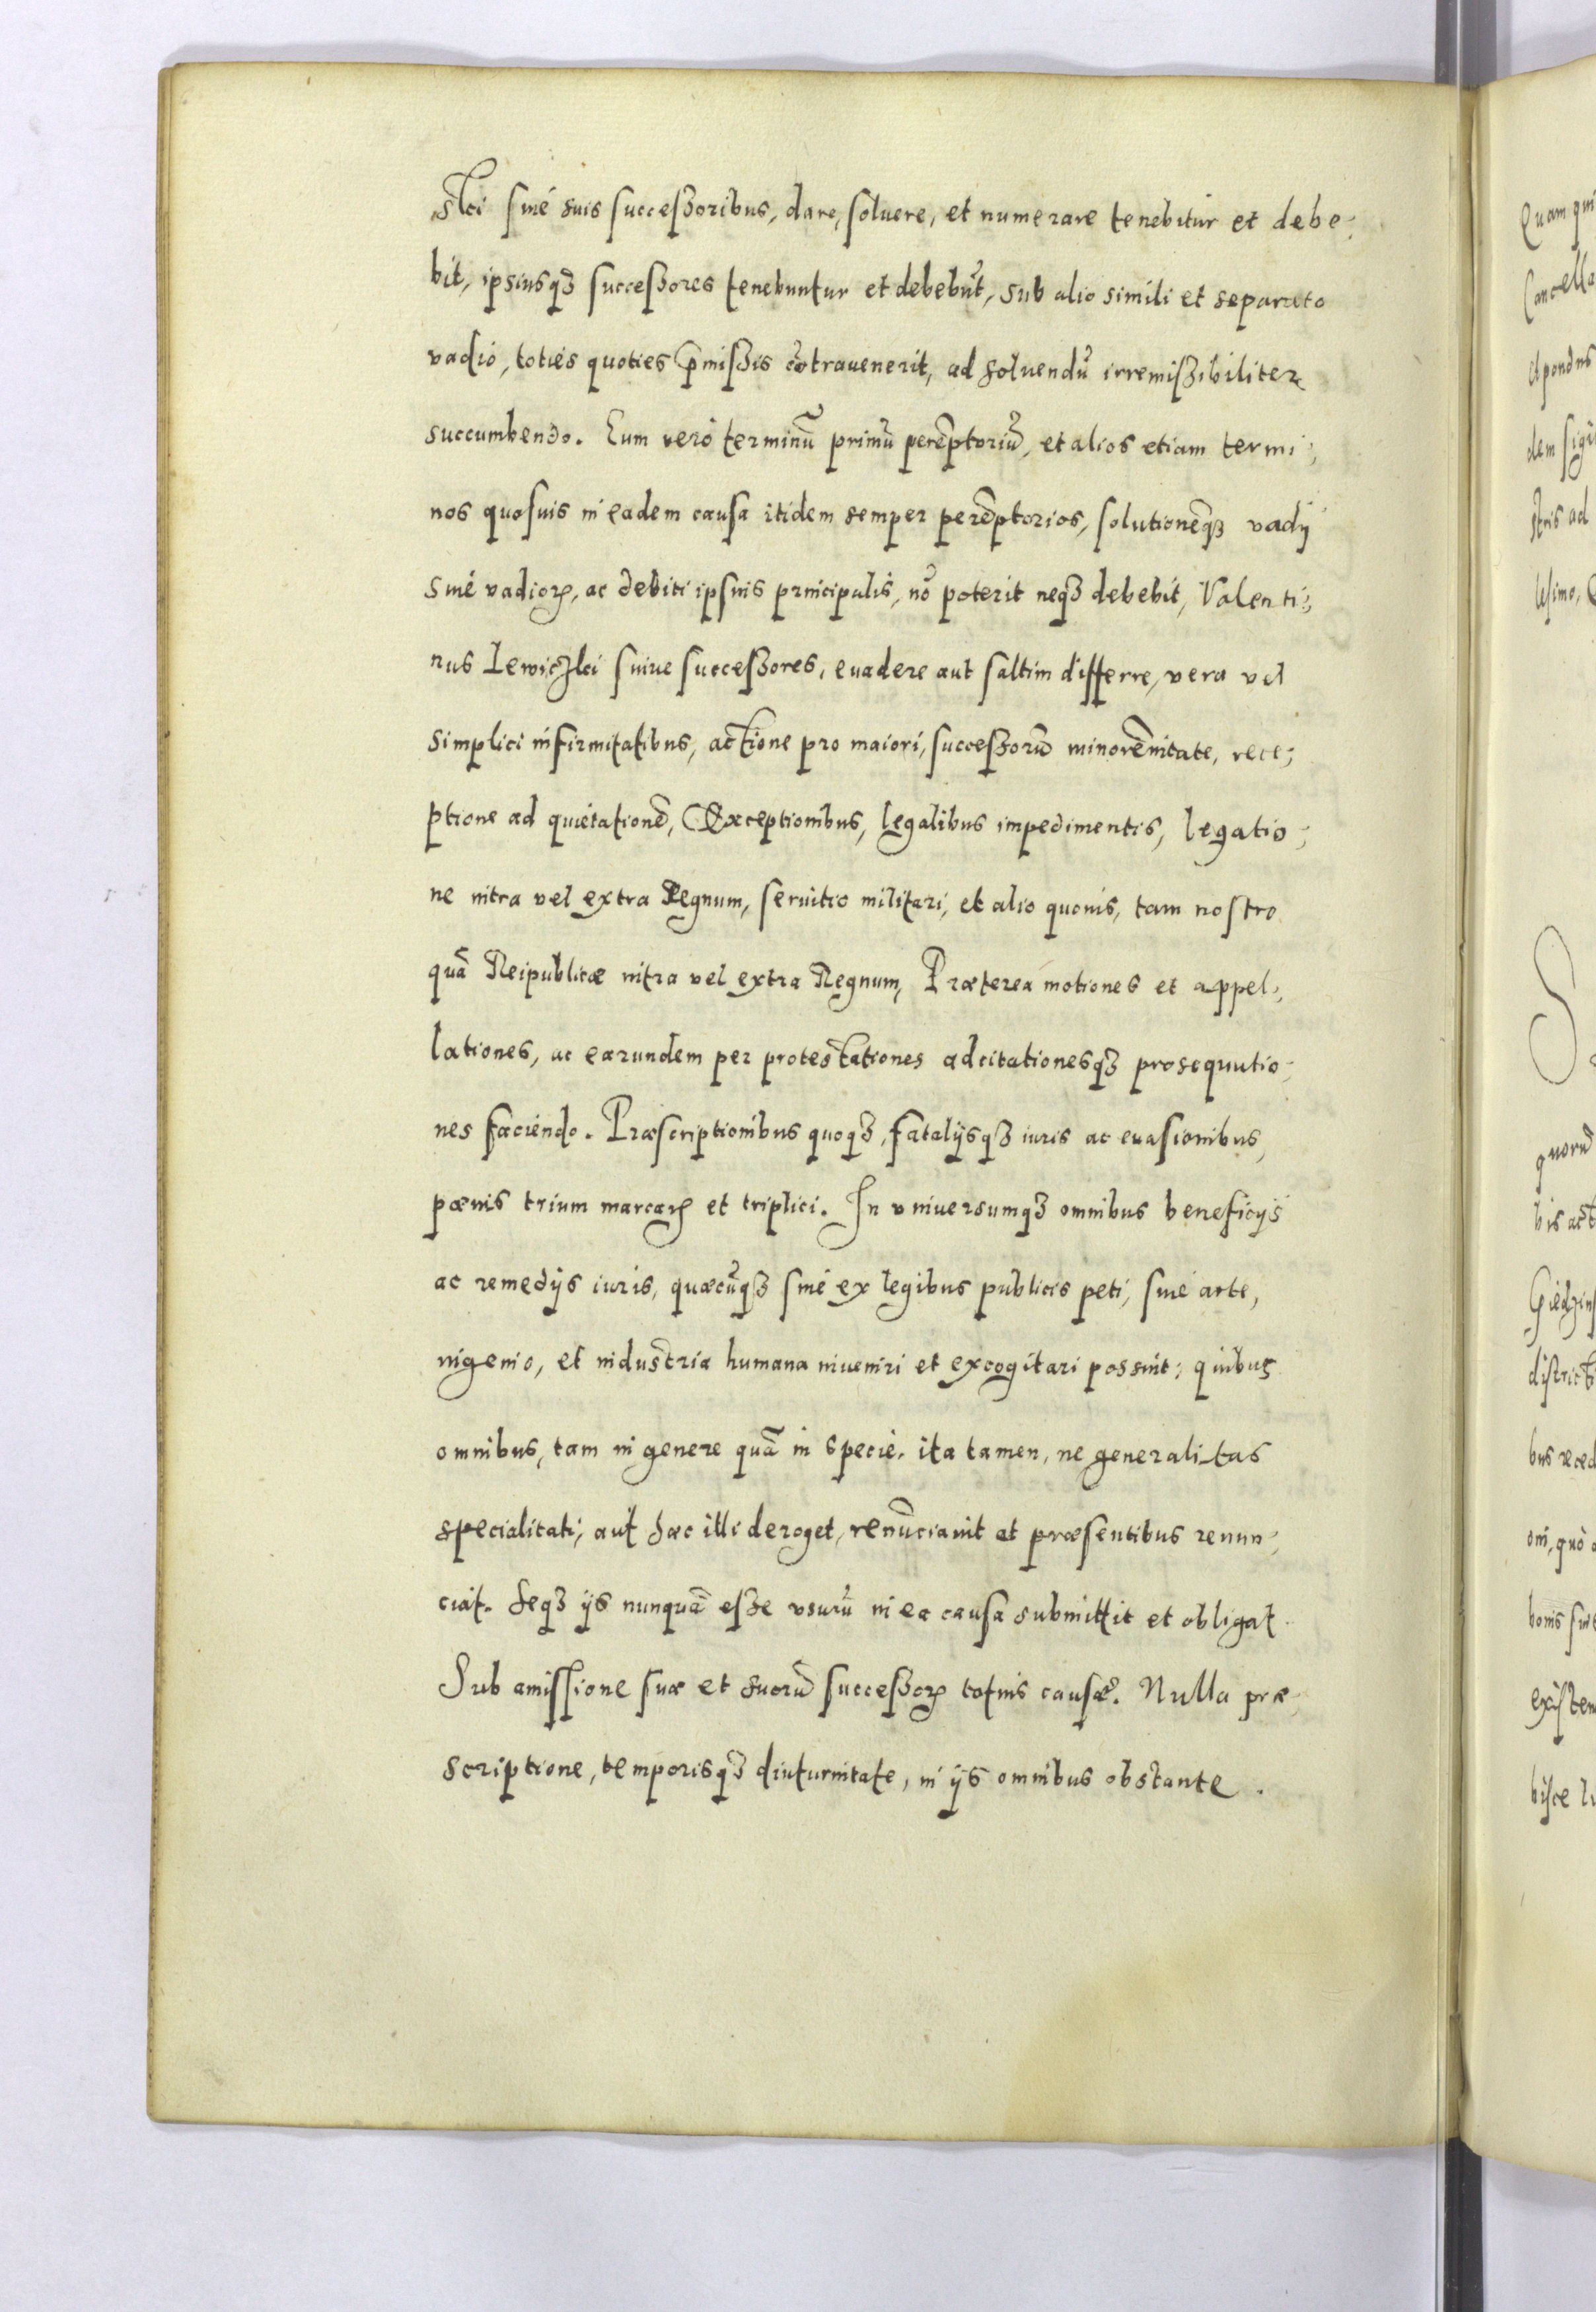 ski siué suis successoribus, dare, soluere, et numerare tenebitur et debe:
bit, ipsiusqʒ successores tenebuntur et debebũt, sub alio simili et separato
vadio, toties quoties p̃missis cõtrauenerit, ad soluendũ irremissibiliter
succumbendo. Eum verò terminũ primũ perẽptoriũ, et alios etiam termi:
nos quosuis in eadem causa itidem semper perẽptorios, solutionẽqʒ vadij
siué vadioꝝ, ac debiti ipsius principalis, nõ poterit neqʒ debebit, Valenti:
nus Lewiczki suiue successores, euadere aut saltim differre, vera vel
simplici infirmitatibus, actione pro maiori, successorũ minorẽnitate, rece:
ptione ad quietationẽ, Exceptionibus, legalibus impedimentis, legatio:
ne intra vel extra Regnum, seruitio militari, et alio quouis, tam nostro
quã Reipublicæ intra vel extra Regnum, Præterea motiones et appel:
lationes, ac earundem per protestationes adcitationesqʒ prosequutio:
nes faciendo. Præscriptionibus quoqʒ, fatalijsqʒ iuris ac euasionibus,
pœnis trium marcaꝝ et triplici. In vniuersumqʒ omnibus beneficijs
ac remedijs iuris, quæcũqʒ siué ex legibus publicis peti, siué arte,
ingenio, et industria humana inueniri et excogitari possint; quibus
omnibus, tam in genere quã in specie. ita tamen, ne generalitas
specialitati, aut hæc illi deroget, renũciauit et præsentibus renun:
ciat. seqʒ ijs nunquã esse vsurũ in ea causa submittit et obligat.
Sub amissione suæ et suorũ successoꝝ totius causæ. Nulla præ:
scriptione, temporisqʒ diuturnitate, in ijs omnibus obstante.